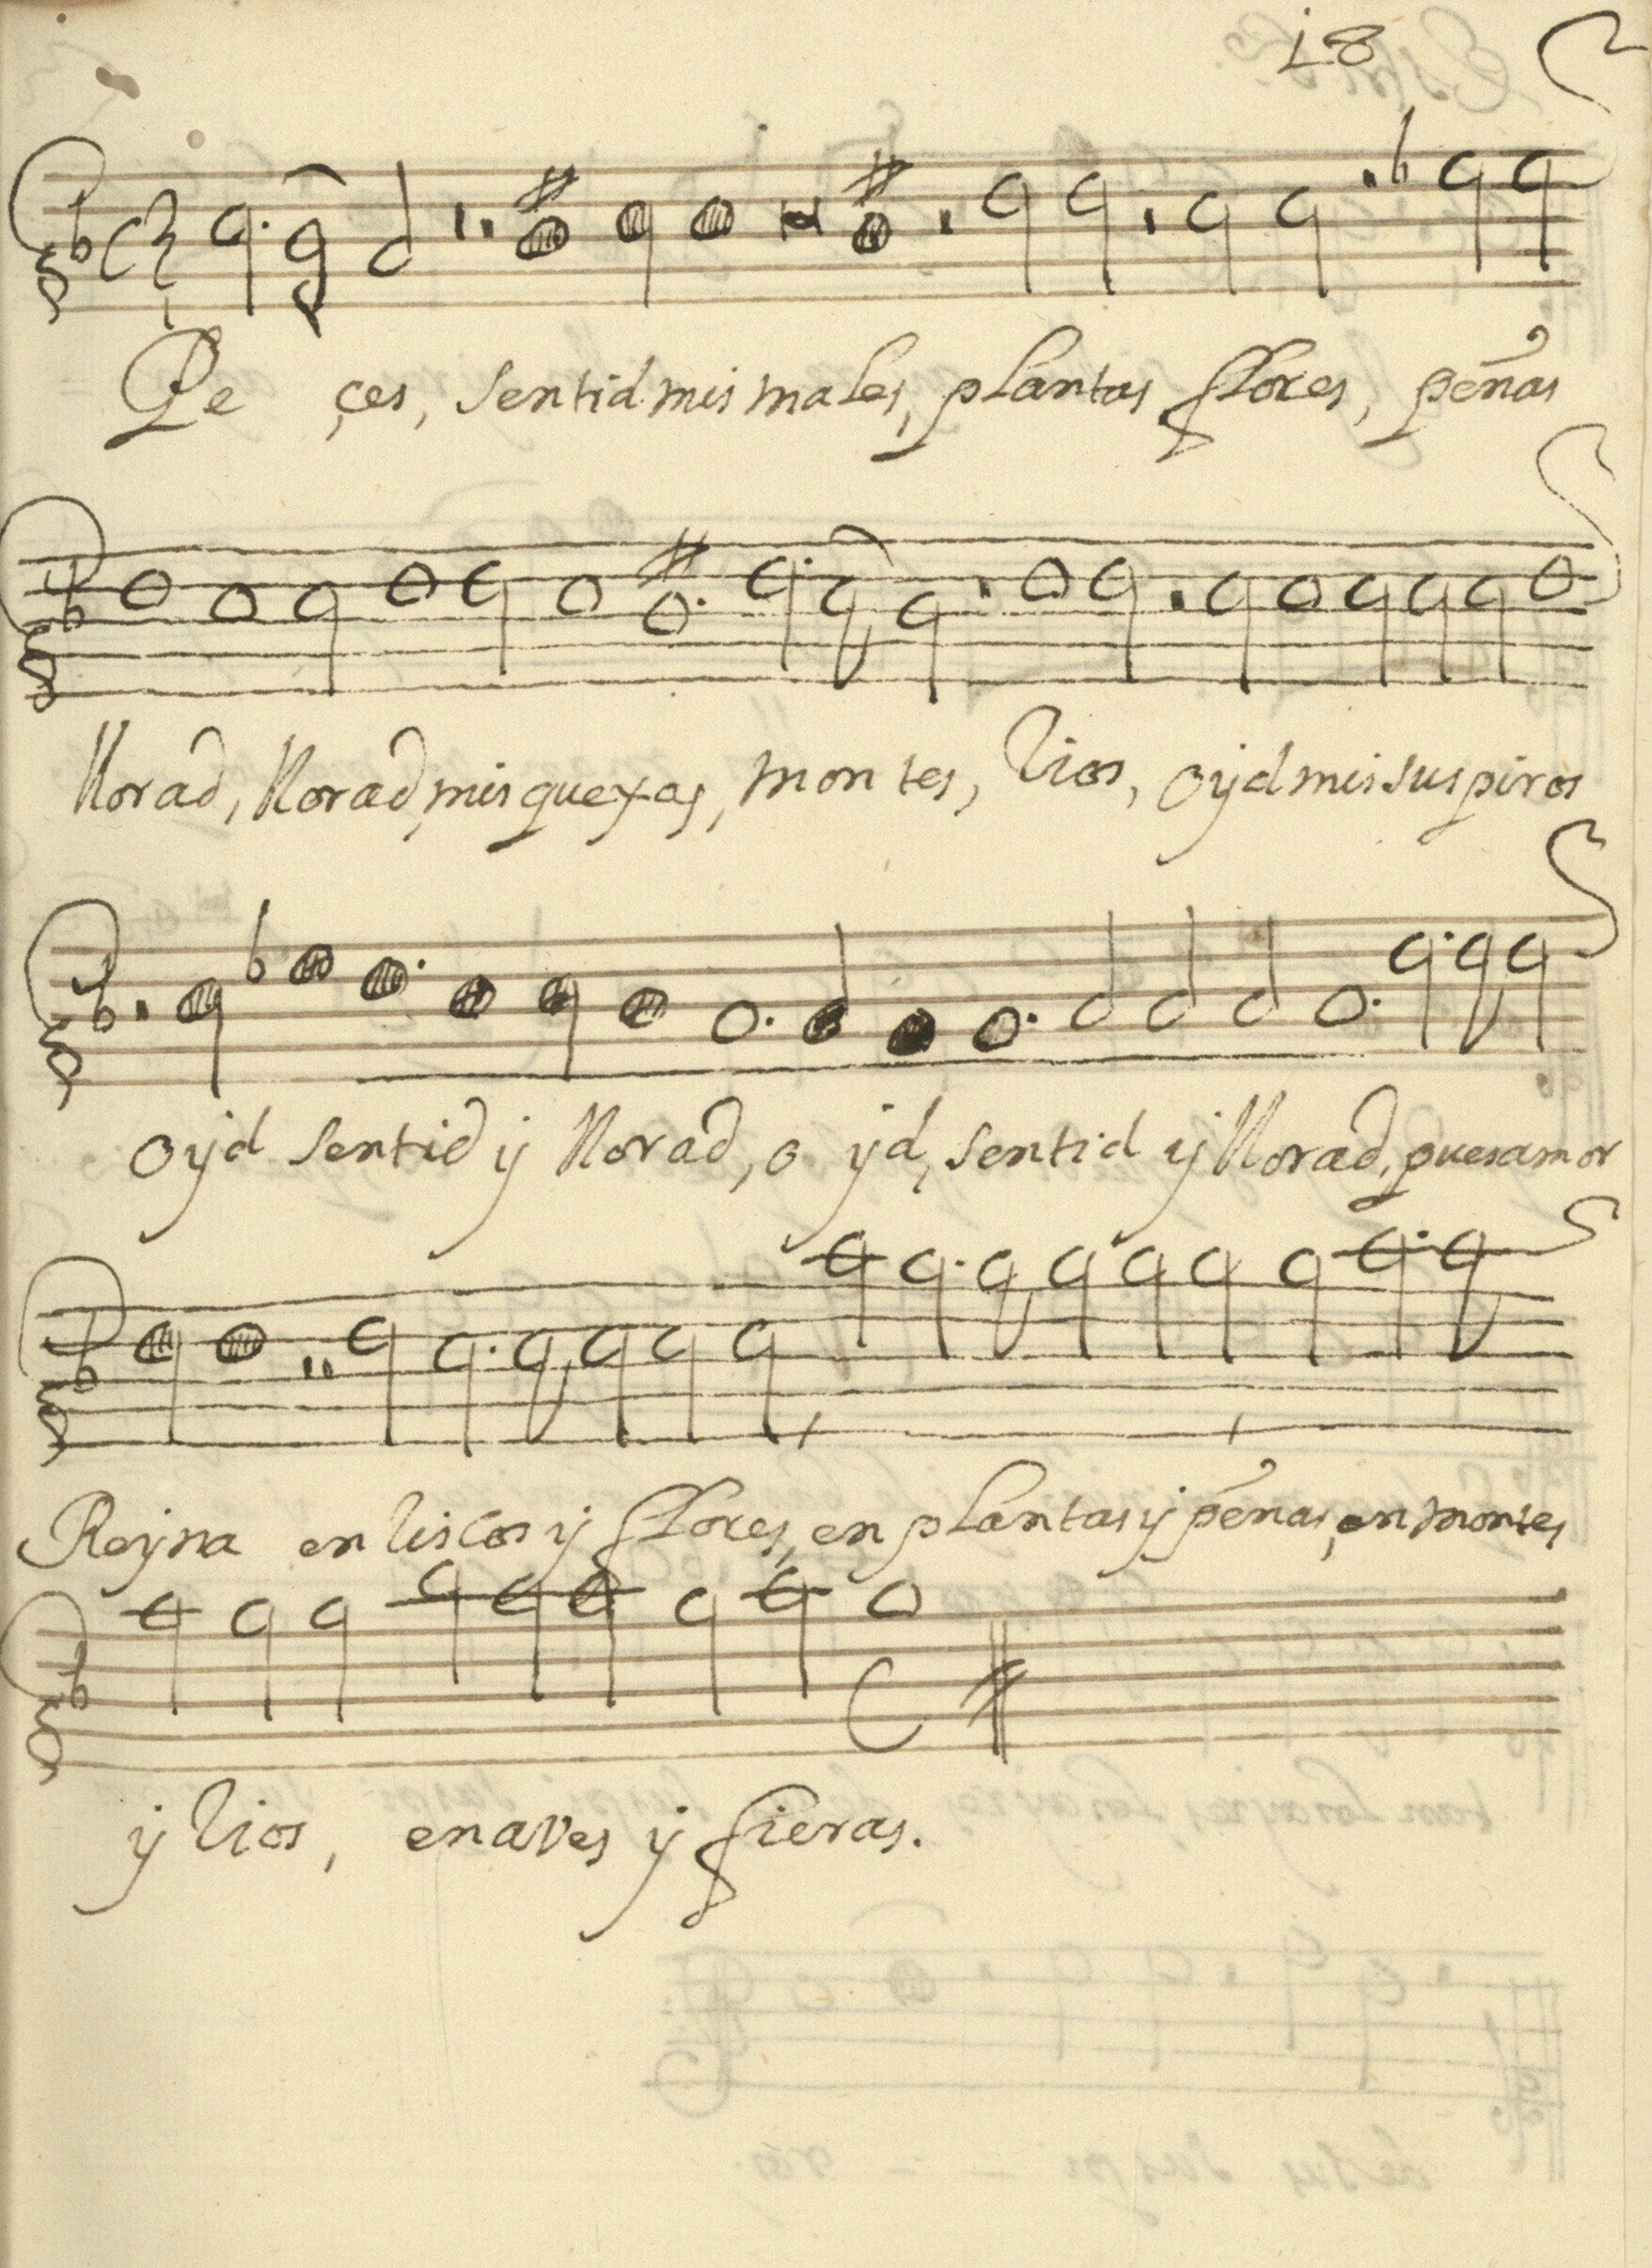 18
Peçes, sentid mis males, plantas flores, peñas
llorad, llorad, mis quexas, montes, Rios, oyd mis suspiros
oyd sentid y llorad, oyd, sentid y llorad, pues amor
Reyna en Riscos y flores, en plantas y peñas, en montes
y Rios, en aves y fieras.